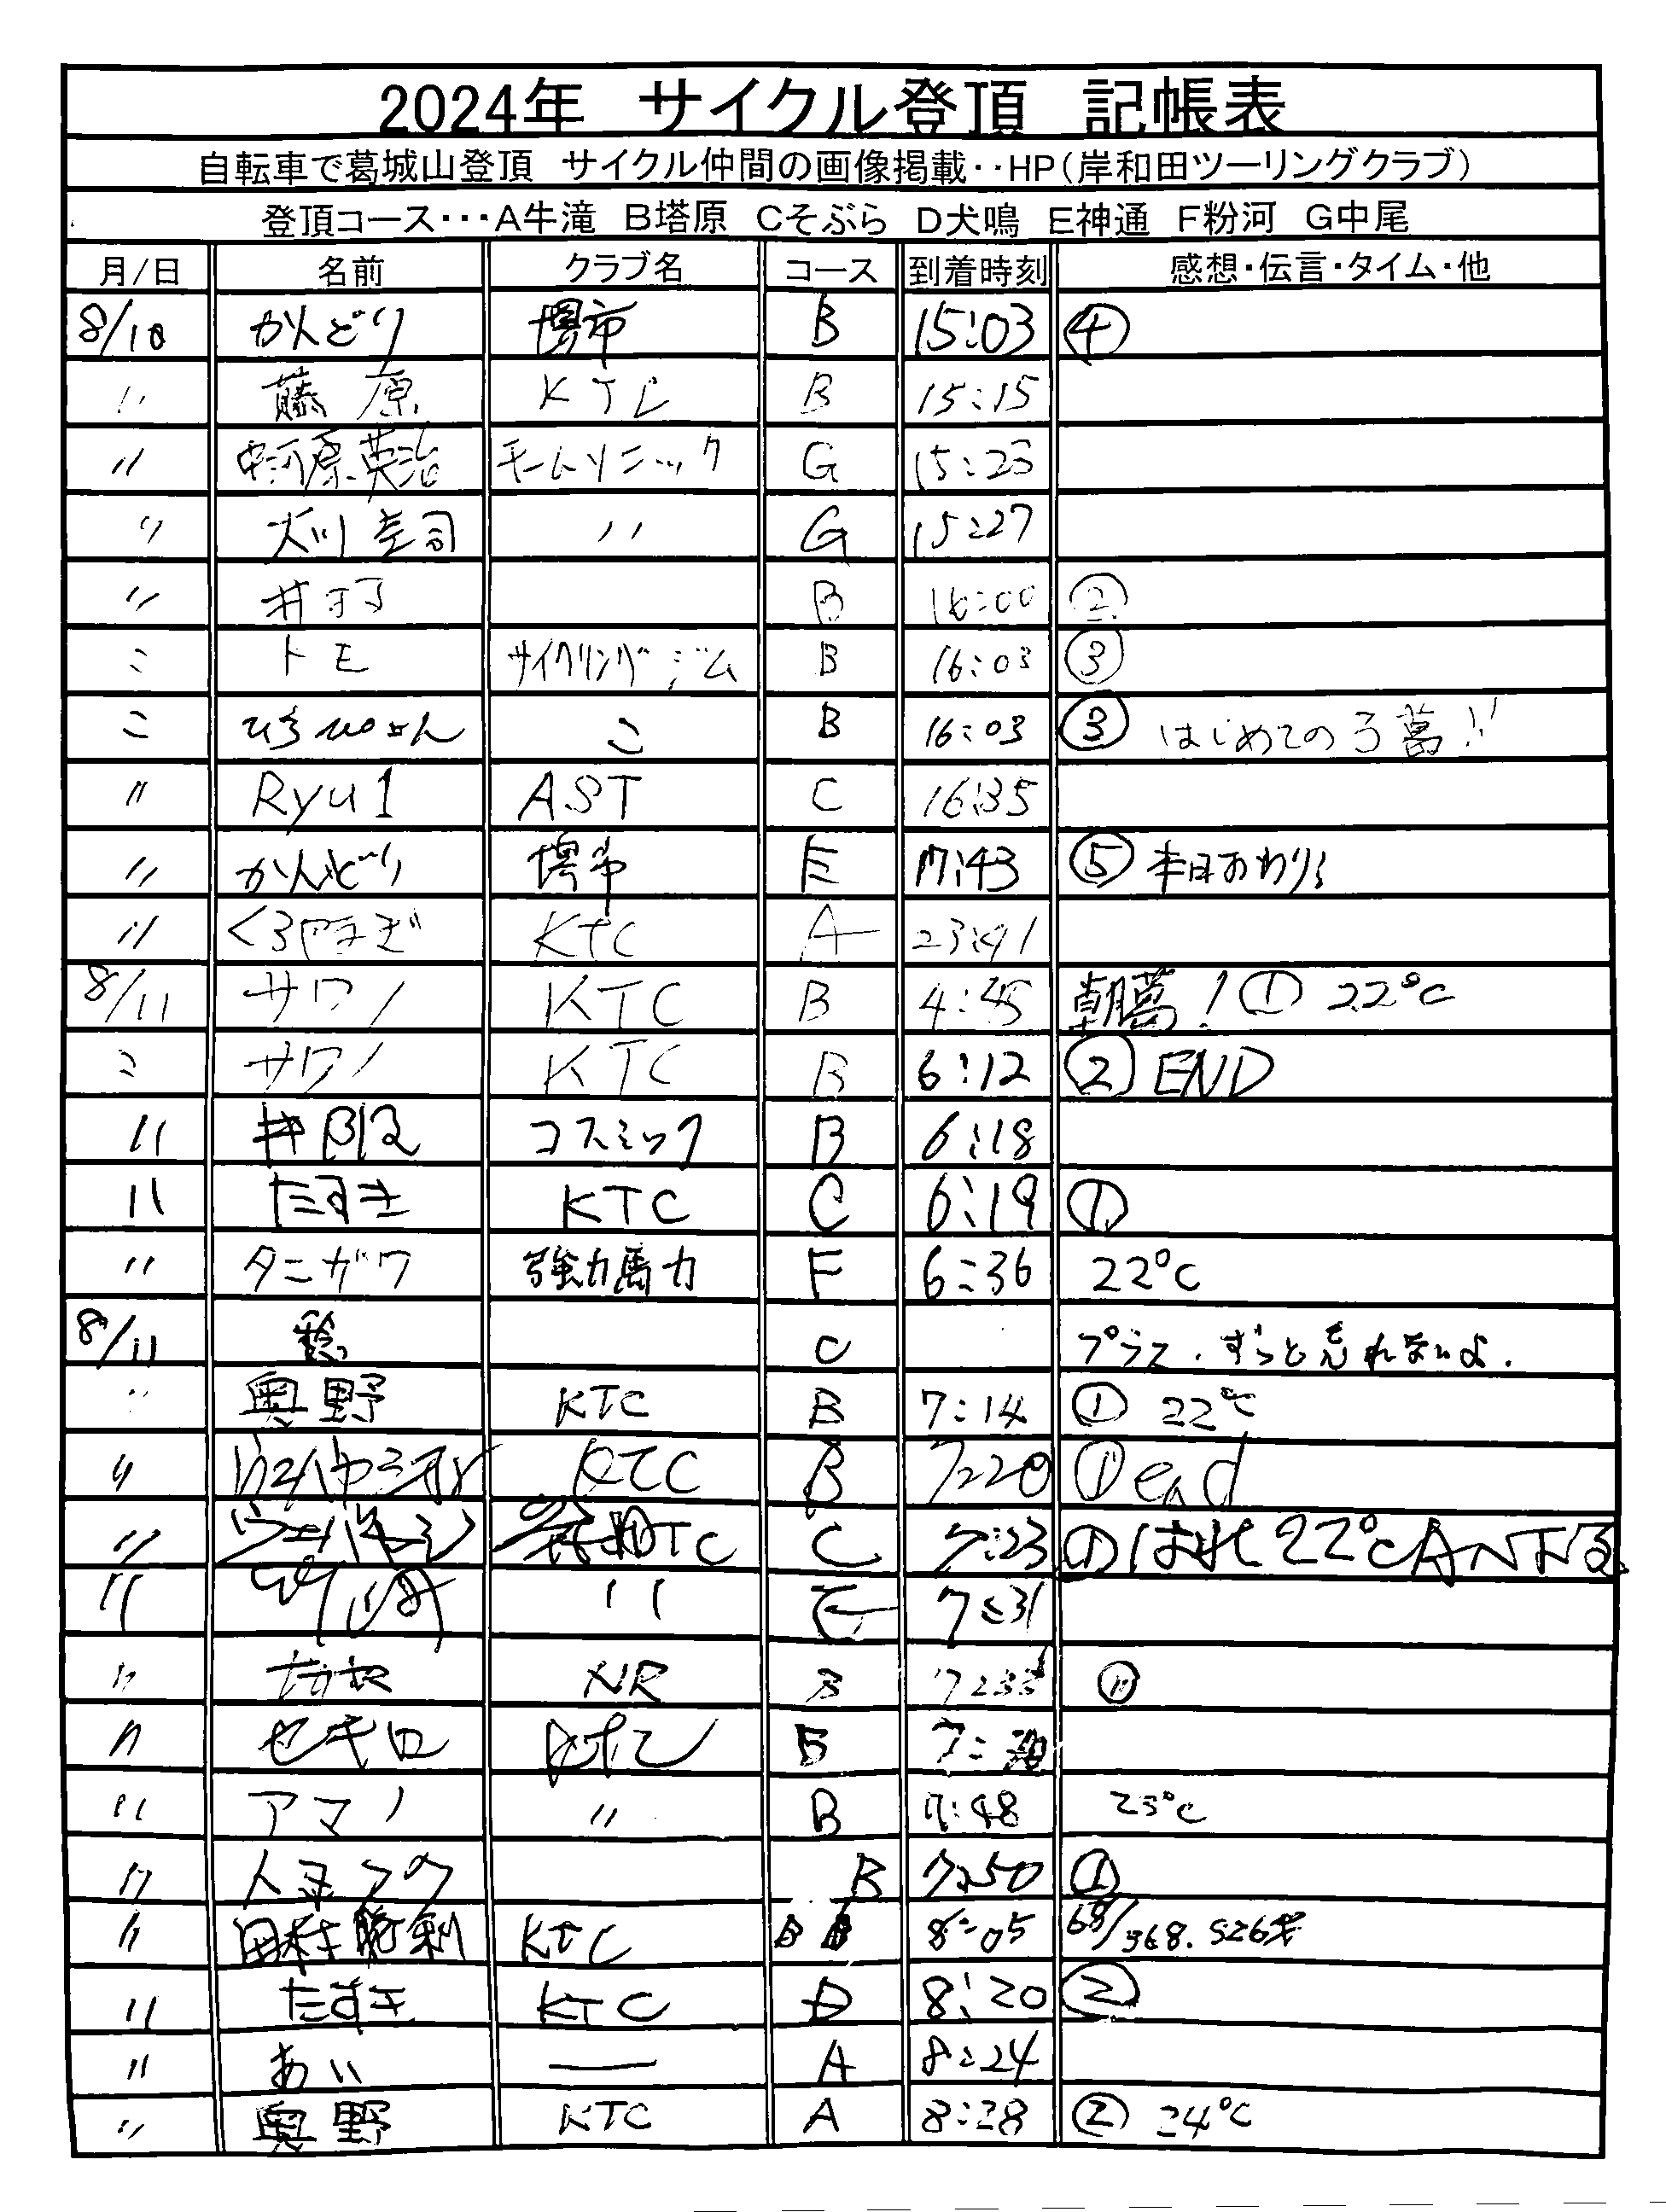 2024年 サイクル登頂 記帳表
自転車で葛城山登頂 サイクル仲間の画像掲載・・HP(岸和田ツーリングクラブ)
登頂コース・・・A牛滝 B塔原 Cそぶら D犬鳴 E神通 F粉河 G中尾
月/日 名前 クラブ名 コース 到着時刻 感想・伝言・タイム・他
8/10 かんどり 堺市 B 15:03 ④
〃 藤原 KTC B 15:15
〃 中河原英治 チームソニック G 15:23
〃 圭司 〃 G 15:27
〃 井 B 16:00 ②
〃 トモ サイクリングジム B 16:03 ③
〃 〃 B 16:03 ③ はじめての3葛!!
〃 Ryu1 AST C 16:35
〃 かんどり 堺市 E 17:43 ⑤ 本日おわり
〃 くろやまぎ KTC A 23:41
8/11 サワノ KTC B 4:45 朝葛! ① 22℃
〃 サワノ KTC B 6:12 ② END
〃 井阪 コスミック B 6:18
〃 たすき KTC C 6:19 ①
〃 タニガワ 強力馬力 F 6:36 22℃
8/11 C プラス.ずっと忘れないよ.
〃 奥野 KTC B 7:14 ① 22℃
〃 KTC B 7:20 ① end
〃 KTC C 7:23 ① はれ 22℃
〃 〃 7:31
〃 NR B 7:33
〃 セキロ KTC 7:
〃 アマノ 〃 B 7:48 23℃
〃 B 7:50 ①
〃 田村 KTC B 8:05 68/368.526
〃 たすき KTC D 8:20 ②
〃 あい — A 8:24
〃 奥野 KTC A 8:28 ② 24℃